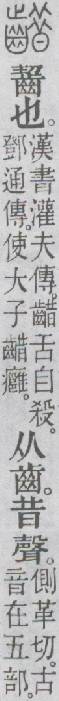 齰 齧也。
漢書灌夫傳。齰舌自殺。
鄧通傳。使大子齰癰。
从齒。昔聲。
側革切。古
音在五部。